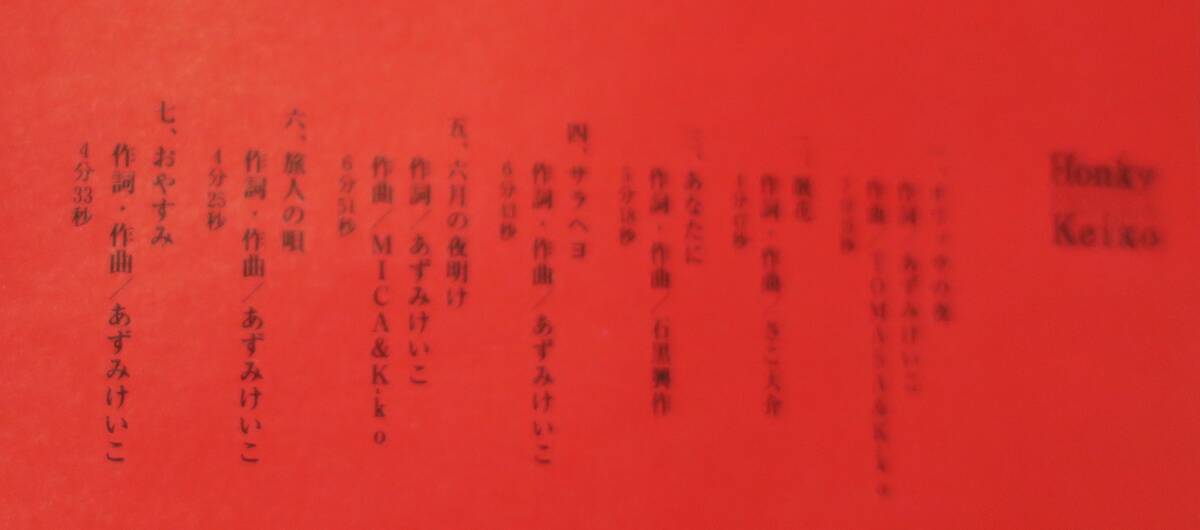 Honky
Keiko
作詞／あずみけいこ
作曲／TOMASA&K.ko
作詞・作曲／さこ大介
三、あなたに
作詞・作曲／石黒興作
5分18秒
四、サラヘヨ
作詞・作曲／あずみけいこ
6分43秒
五、六月の夜明け
作詞／あずみけいこ
作曲／MICA&K.ko
6分51秒
六、旅人の唄
作詞・作曲／あずみけいこ
4分25秒
七、おやすみ
作詞・作曲／あずみけいこ
4分33秒